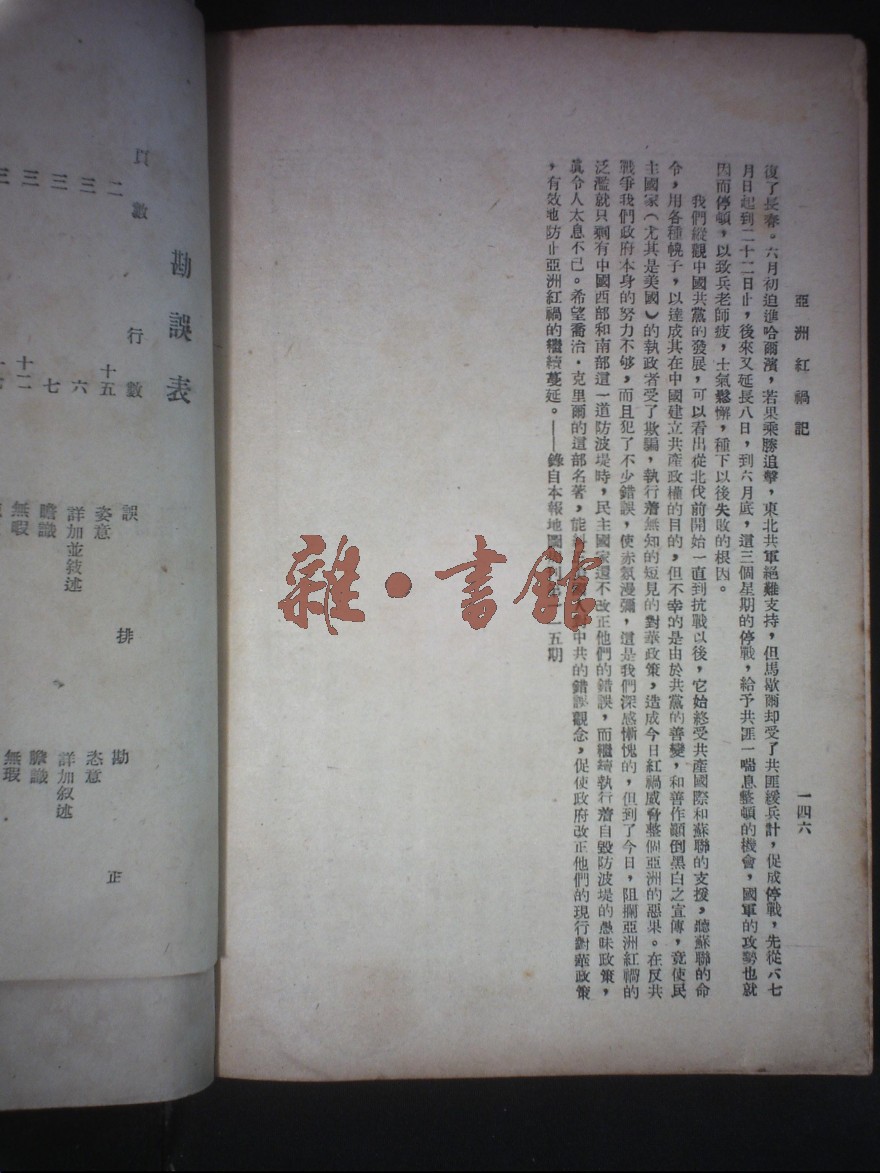 亞洲紅禍記
一四六
復了長春。六月初追進哈爾濱，若果乘勝追擊，東北共軍絕難支持，但馬歇爾却受了共匪緩兵計，促成停戰，先從六七
月日起到二十二日止，後來又延長八日，到六月底，這三個星期的停戰，給予共匪一喘息整頓的機會，國軍的攻勢也就
因而停頓，以致兵老師疲，士氣鬆懈，種下以後失敗的根因。
我們縱觀中國共黨的發展，可以看出從北伐前開始一直到抗戰以後，它始終受共產國際和蘇聯的支援，聽蘇聯的命
令，用各種幌子，以達成其在中國建立共產政權的目的，但不幸的是由於共黨的善變，和善作顚倒黑白之宣傳，竟使民
主國家（尤其是美國）的執政者受了欺騙，執行着無知的短見的對華政策，造成今日紅禍威脅整個亞洲的惡果。在反共
戰爭我們政府本身的努力不够，而且犯了不少錯誤，使赤氛漫彌，這是我們深感慚愧的，但到了今日，阻攔亞洲紅禍的
泛濫就只剩有中國西部和南部這一道防波堤時，民主國家還不改正他們的錯誤，而繼續執行着自毀防波堤的愚昧政策，
眞令人太息不已。希望喬治．克里爾的這部名著，能 中共的錯誤觀念，促使政府改正他們的現行對華政策
，有效地防止亞洲紅禍的繼續蔓延。——錄自本報地圖 五期
勘誤表
頁數 行數 誤排 勘正
二 十五 姿意 恣意
三 六 詳加並敍述 詳加叙述
三 七 瞻識 膽識
三 十二 無暇 無瑕
雜·書館